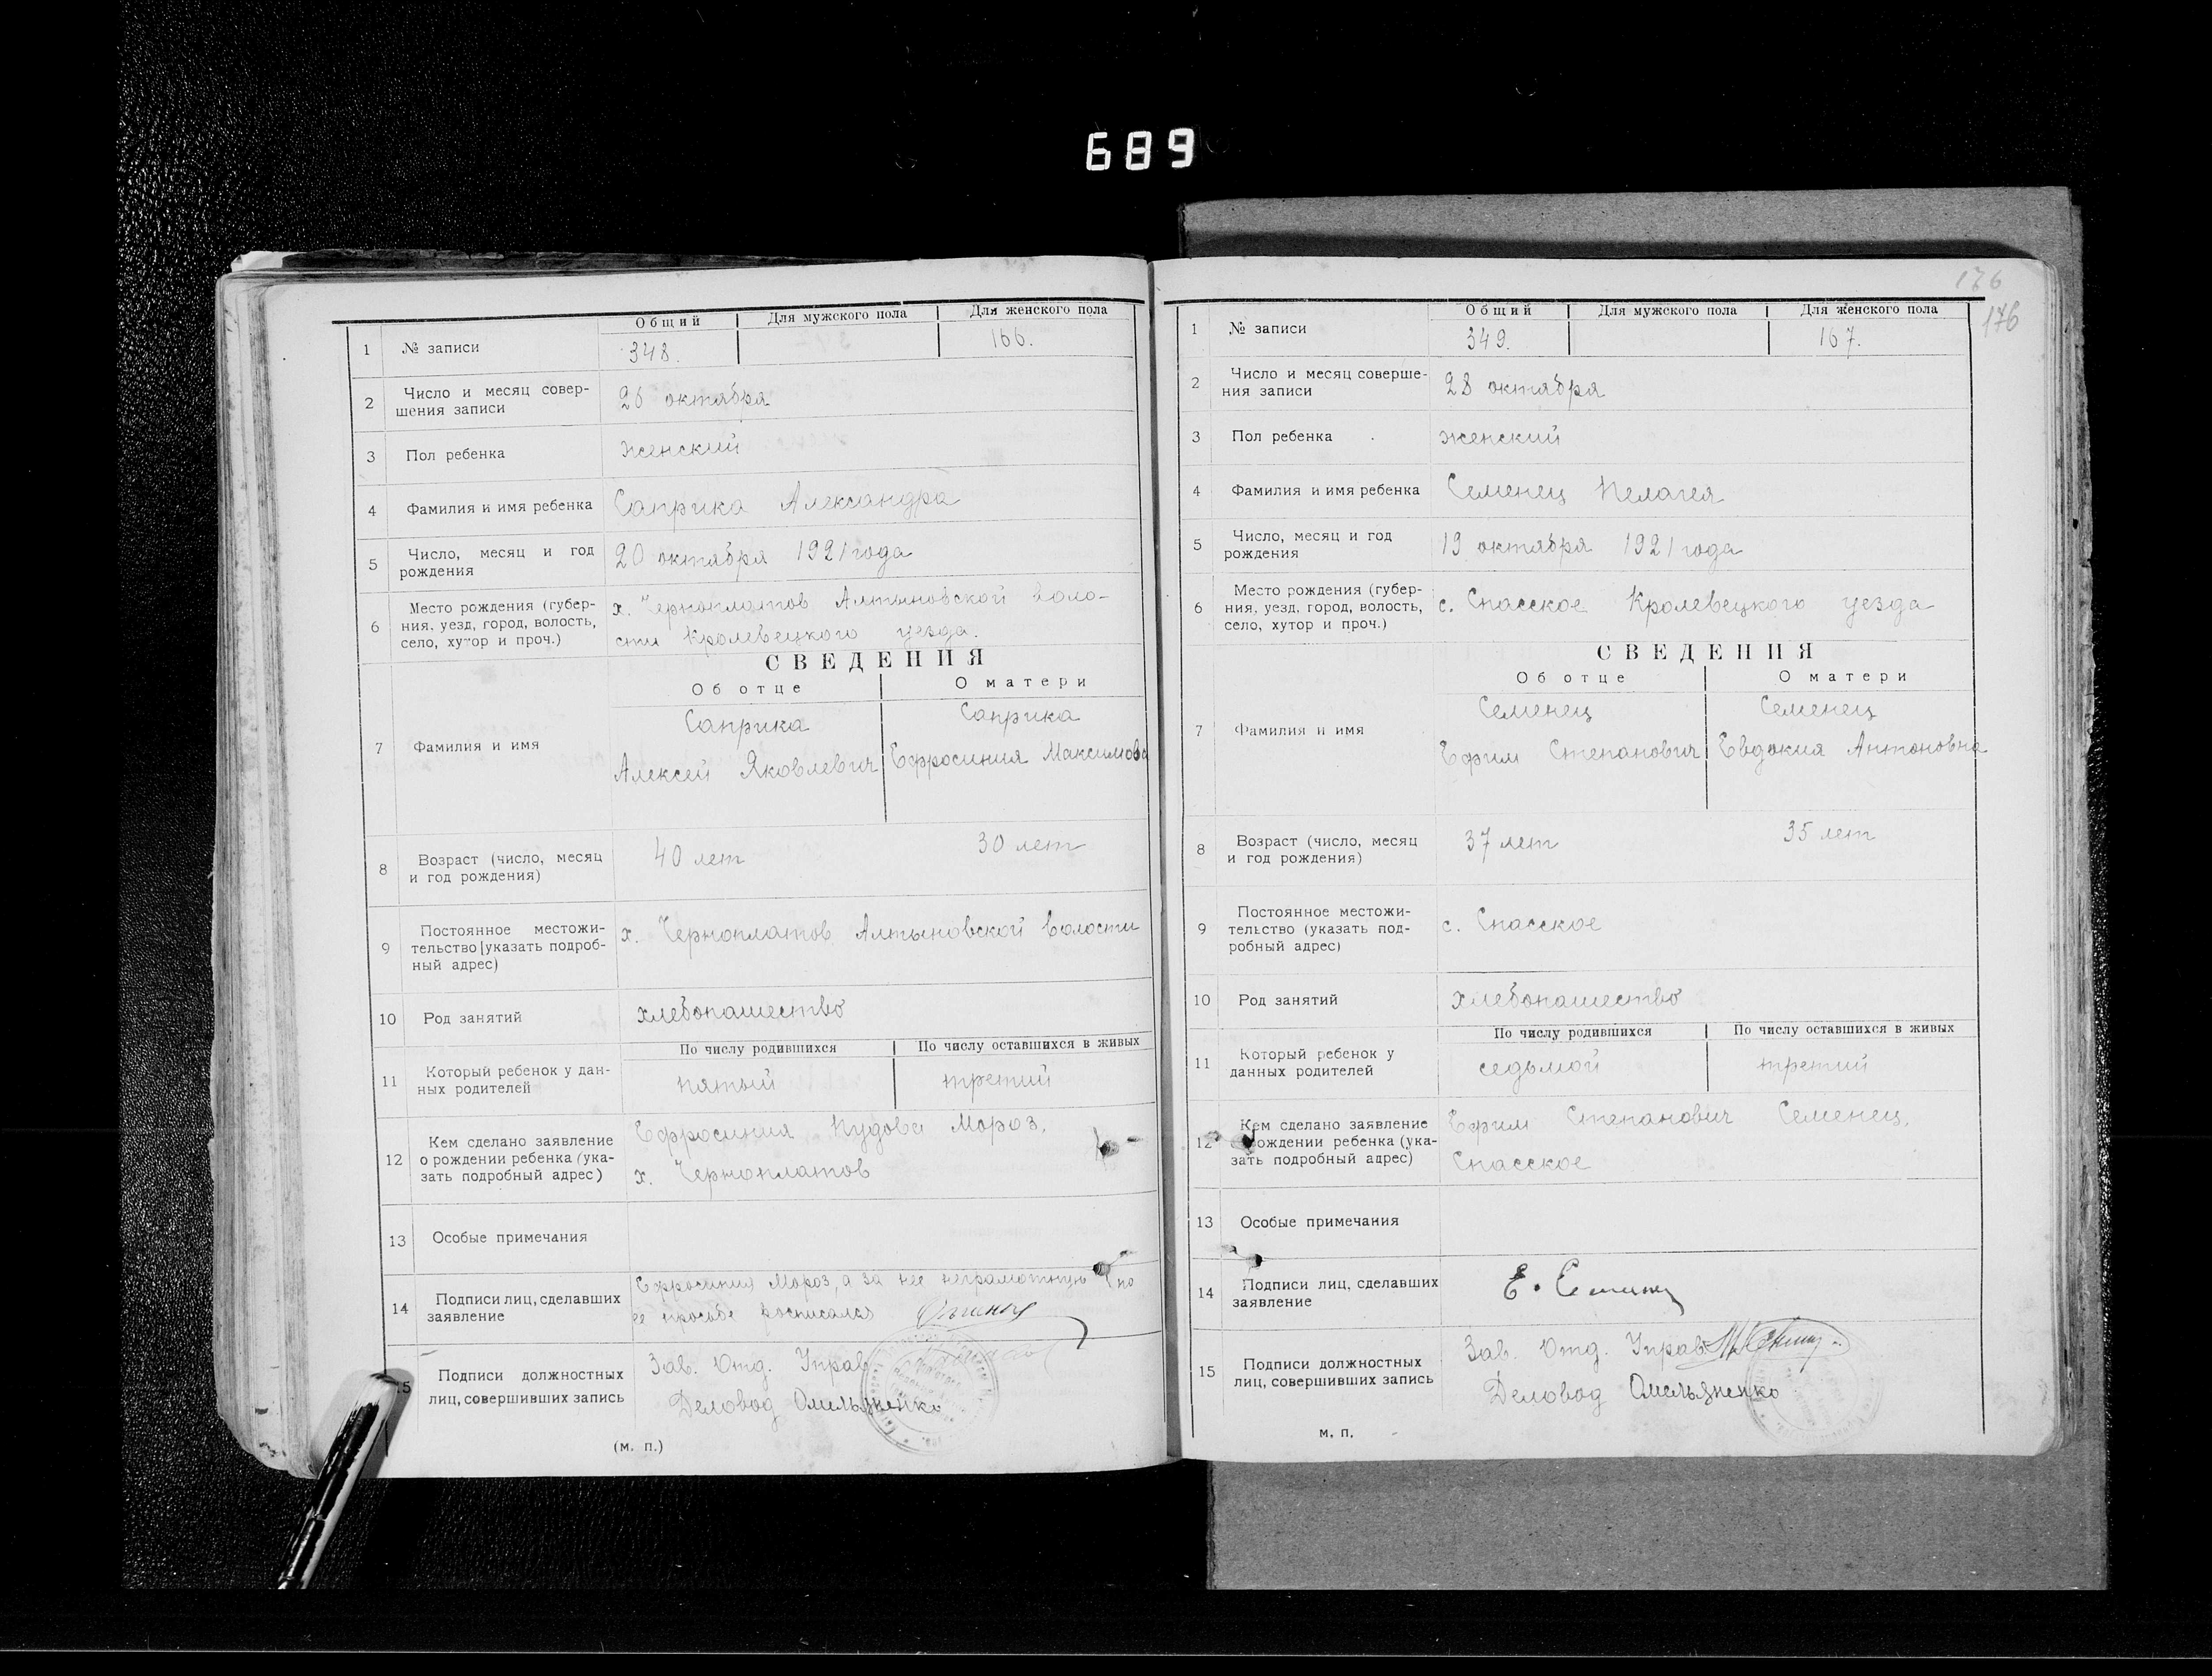 689
Общий Для мужского пола Для женского пола
1 № записи 348. 166.
2 Число и месяц совер-
шения записи 26 октября
3 Пол ребенка женский
4 Фамилия и имя ребенка Саприка Александра
5 Число, месяц и год
рождения 20 октября 1921 года
6 Место рождения (губер-
ния, уезд, город, волость,
село, хутор и проч.) х. Черноплатов Алтыновской воло-
сти Кролевецкого уезда.
СВЕДЕНИЯ
Об отце О матери
7 Фамилия и имя
Саприка Саприка
Алексей Яковлевич Ефросиния Максимова
8 Возраст (число, месяц
и год рождения) 40 лет 30 лет
9 Постоянное местожи-
тельство [указать подроб-
ный адрес) х. Черноплатов Алтыновской волости
10 Род занятий хлебопашество
По числу родившихся По числу оставшихся в живых
11 Который ребенок у дан-
ных родителей пятый третий
12 Кем сделано заявление
о рождении ребенка (ука-
зать подробный адрес) Ефросиния Кудова Мороз.
х. Черноплатов
13 Особые примечания
14 Подписи лиц, сделавших
заявление Ефросиния Мороз, а за нее неграмотную по
ее просьбе росписался
15 Подписи должностных
лиц, совершивших запись Зав. Отд. Управ.
Деловод Омельяненко
(м. п.)
176
176
Общий Для мужского пола Для женского пола
1 № записи 349. 167.
2 Число и месяц соверше-
ния записи 28 октября
3 Пол ребенка женский
4 Фамилия и имя ребенка Семенец Пелагея
5 Число, месяц и год
рождения 19 октября 1921 года
6 Место рождения (губер-
ния, уезд, город, волость,
село, хутор и проч.) с. Спасское Кролевецкого уезда
СВЕДЕНИЯ
Об отце О матери
7 Фамилия и имя
Семенец Семенец
Ефим Степанович Евдокия Антоновна
8 Возраст (число, месяц
и год рождения) 37 лет 35 лет
9 Постоянное местожи-
тельство (указать под-
робный адрес) с. Спасское
10 Род занятий хлебопашество
По числу родившихся По числу оставшихся в живых
11 Который ребенок у
данных родителей седьмой третий
12 Кем сделано заявление
о рождении ребенка (ука-
зать подробный адрес) Ефим Степанович Семенец.
Спасское
13 Особые примечания
14 Подписи лиц, сделавших
заявление Е. Семенец
15 Подписи должностных
лиц, совершивших запись Зав. Отд. Управ.
Деловод Омельяненко
м. п.